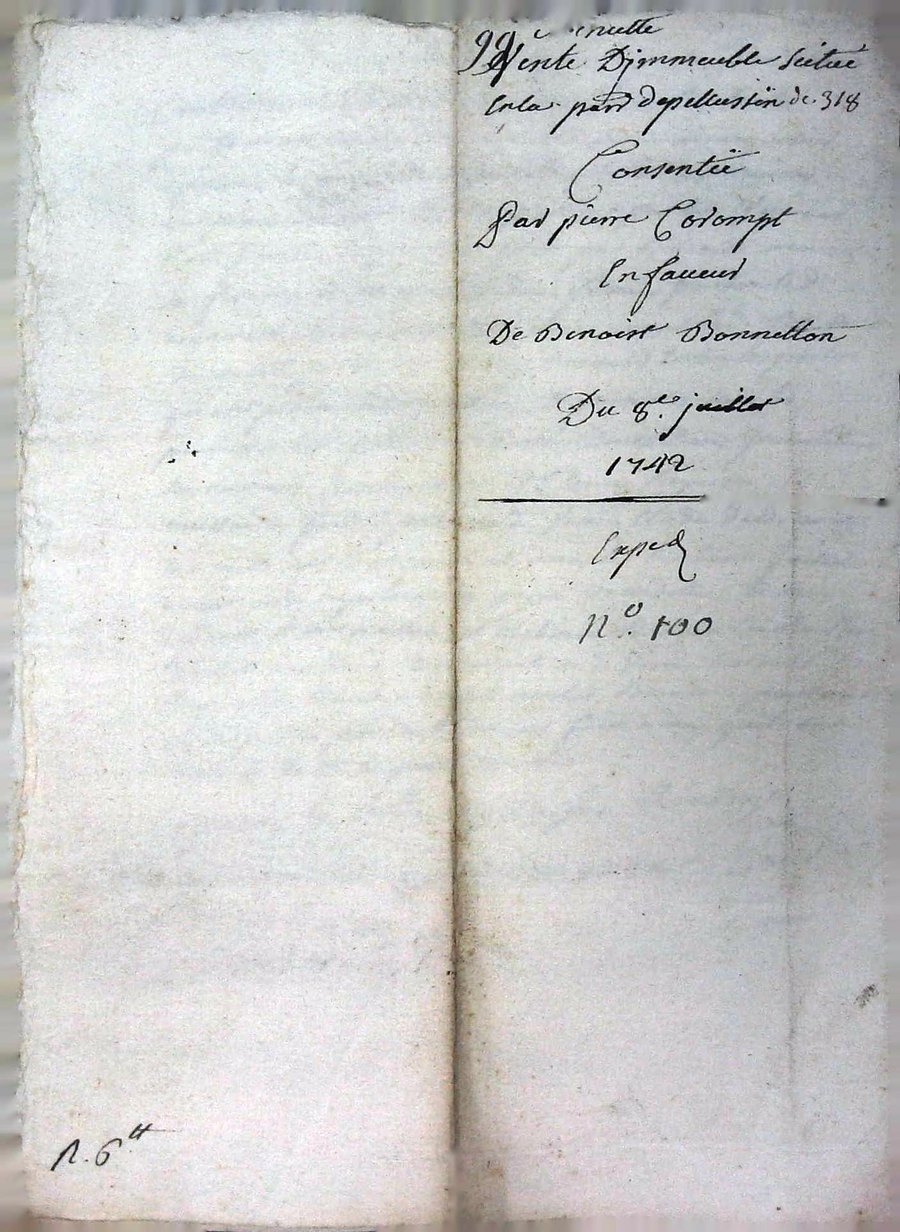 99
Vente Djmmeuble scitué
En la parr depellussin de 318
Consentie
Par pierre Corompt
En faveur
De Benoist Bonnetton
Du 8e. juillet
1742
Exped
N.o 100
R. 6tt